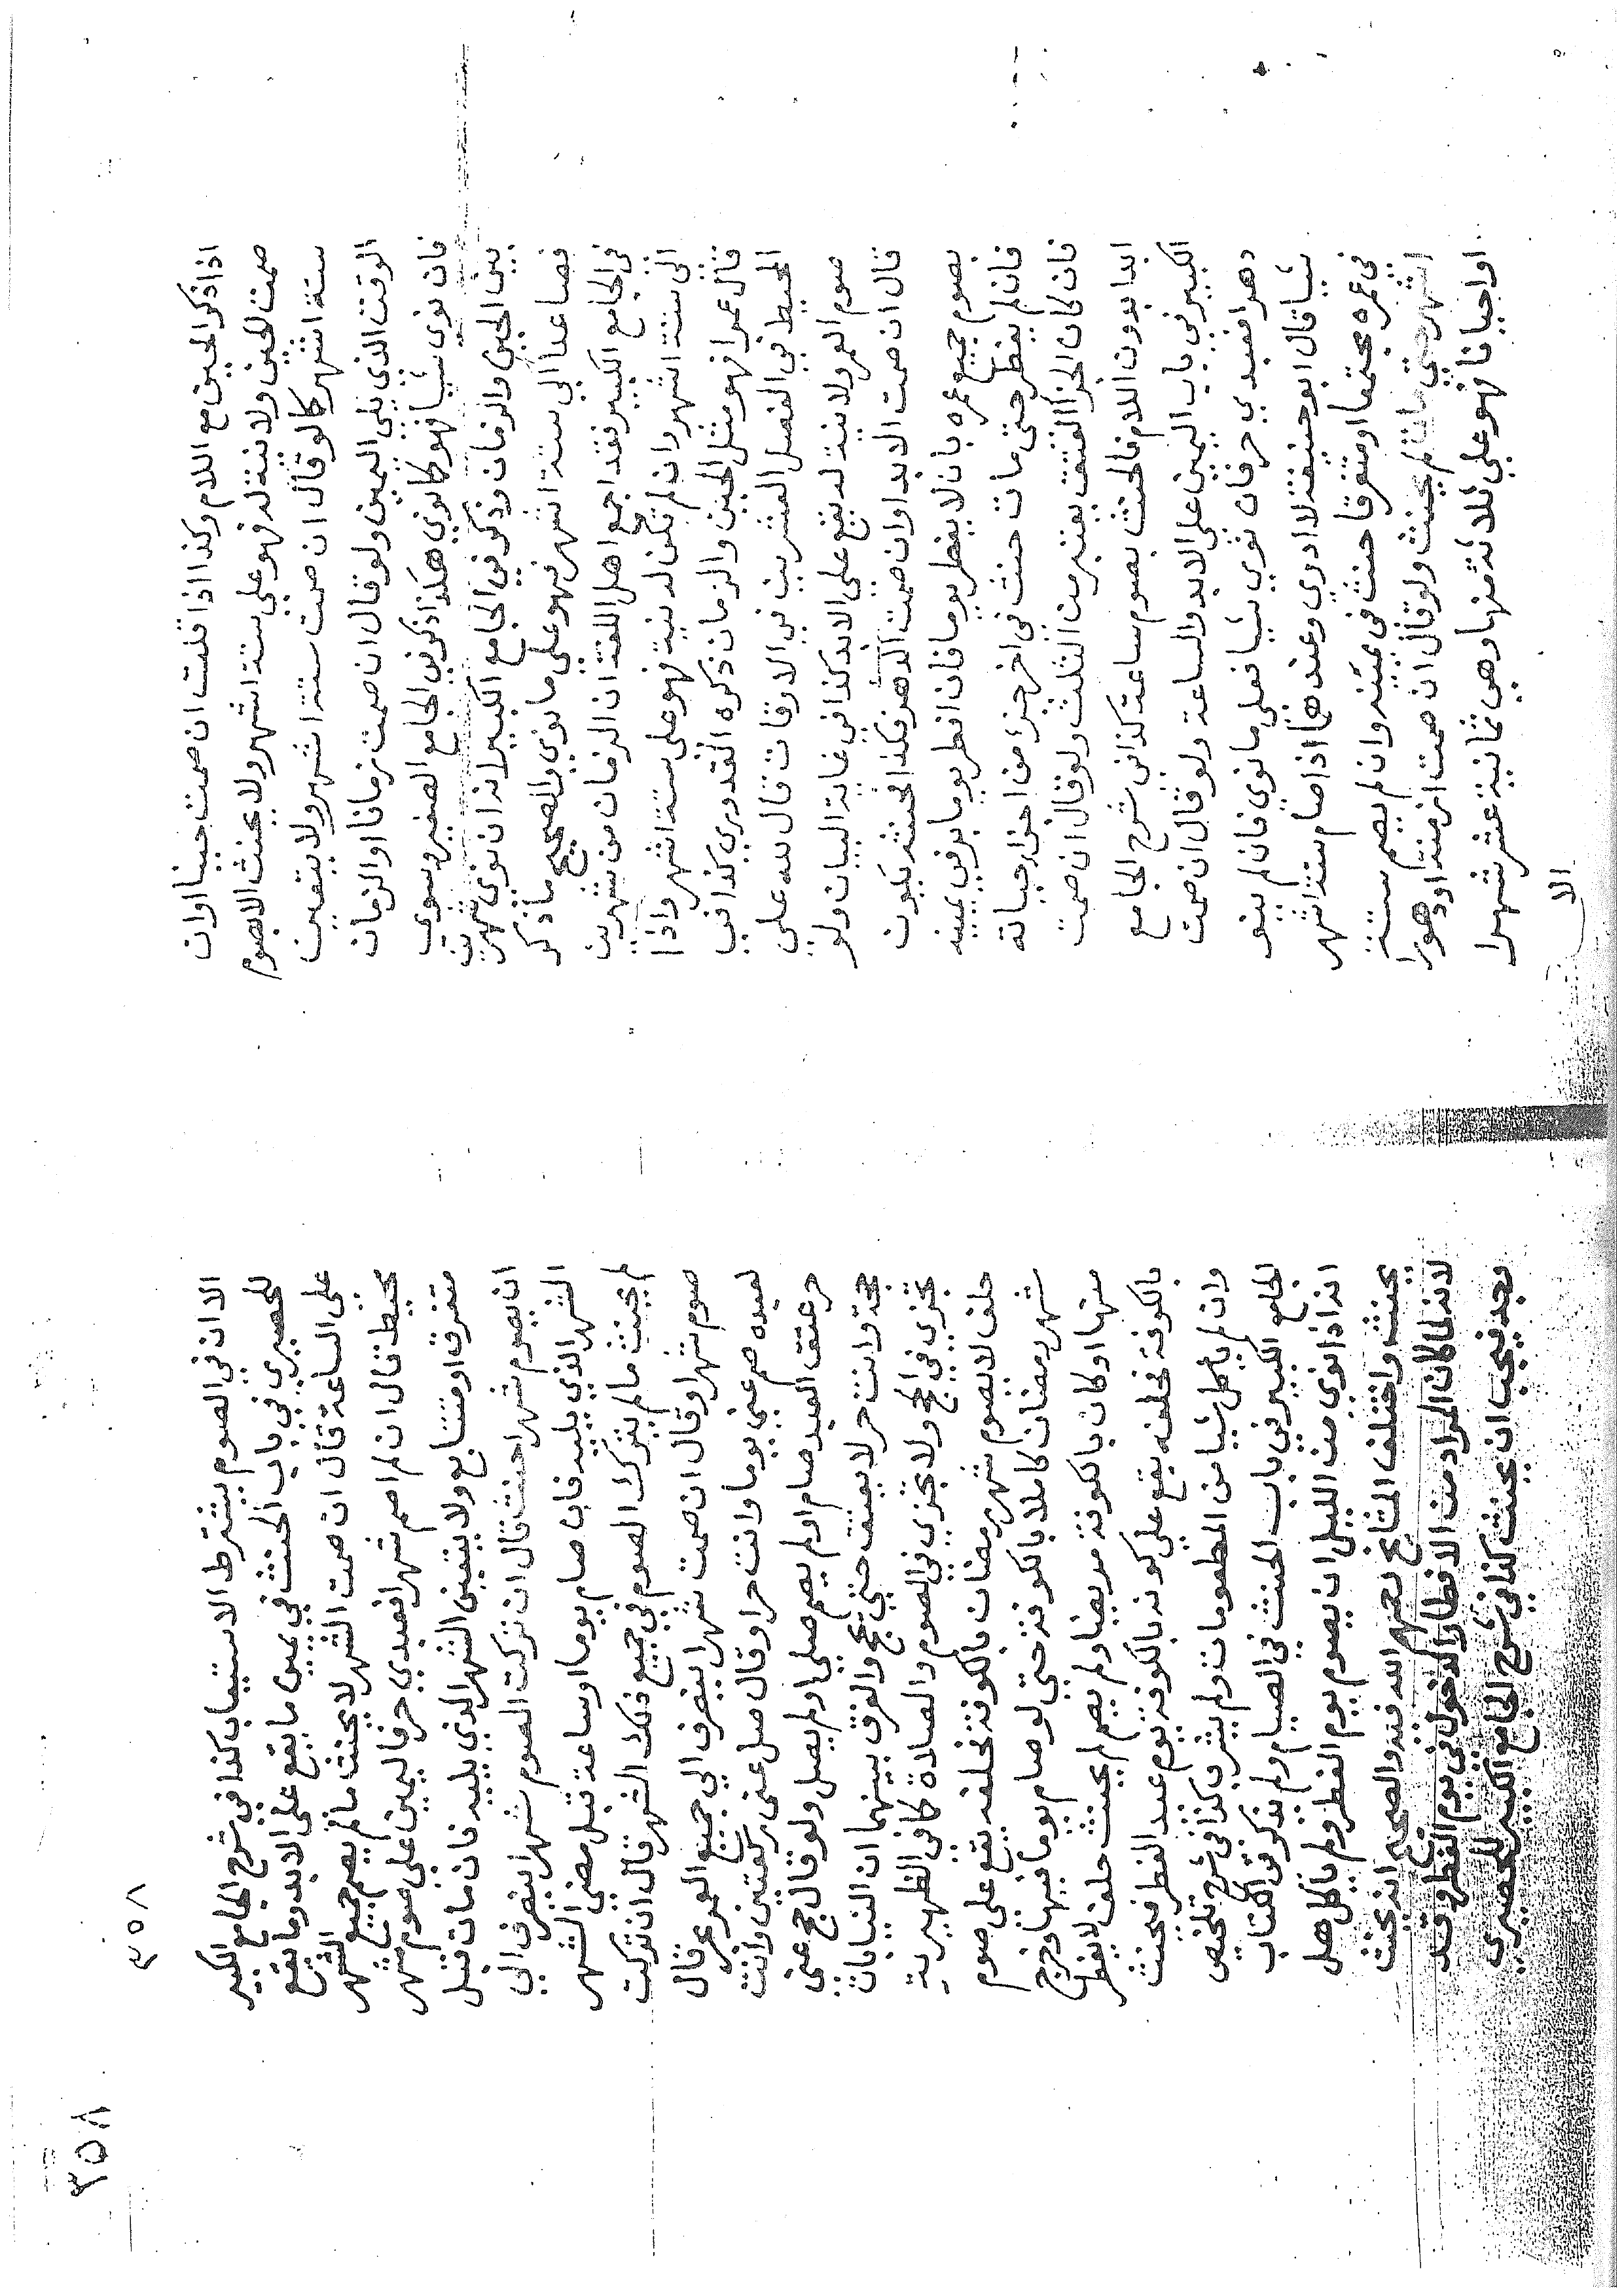 اذا ذكر الحين مع اللام وكذا اذا قلت ان صمت حينا وان
صمت الحين ولا نية له فهو علي ستة اشهر ولا يحنث الا بصوم
ستة اشهر كما لو قال ان صمت ستة اشهر ولا يتعين
الوقت الذي يلي اليمين ولو قال ان صمت زمانا او الزمان
فان نوي شيا فهو كما نوي هكذا ذكر في الجامع الصغير وسوي
بين الحين والزمان وذكر في الجامع الكبير انه ان نوي شهرين
فصاعدا الي ستة اشهر فهو علي ما نوي والصحيح ما ذكر
في الجامع الكبير فقد اجمع اهل اللغة ان الزمان من شهرين
الي ستة اشهر وان لم تكن له نية فهو علي ستة اشهر واذا
قال عمرا فهو مثل الحين والزمان ذكره القدوري كذا في
المحيط في الفصل العشرين في الاوقات قال لله علي
صوم العمر ولا نية له يقع علي الابد كذا في غاية البيان ولو
قال ان صمت الابد او ان صمت الدهر فكذا الحنث يكون
بصوم جميع عمره بان لا يفطر يوما فان افطر يوما بر في يمينه
فان لم يفطر حتي مات حنث في اخر جزء من اجزاء حياته
فان كان الجزا العتق يعتبر من الثلث ولو قال ان صمت
ابدا بدون اللام فالحنث بصوم ساعة كذا في شرح الجامع
الكبير في باب اليمين علي الابد والساعة ولو قال ان صمت
دهرا فعبدي حر فان نوي شيا فعلي ما نوي فان لم ينو
شيا قال ابو حنيفة لا ادري وعندهما اذا صام ستة اشهر
في عمره مجتمعا او متفرقا حنث في يمينه وان لم يصم ستة
اشهر حتي مات لم يحنث ولو قال ان صمت ازمنة او دهورا
او احيانا فهو علي ثلاثة منها وهي ثمانية عشر شهرا
الا
٣٥٨
٣٥٨
الا ان في الصوم يشترط الاستيعاب كذا في شرح الجامع الكبير
للحصيري في باب الحنث في يمين ما يقع علي الابد وما يقع
علي الساعة قال ان صمت الشهر لا يحنث ما لم يصم جميع الشهر
محيط قال ان لم اصم شهرا فعبدي حر فاليمين علي صوم شهر
متفرق او متتابع ولا يتعين الشهر الذي يليه فان مات قبل
ان يصوم شهرا حنث قال ان تركت الصوم شهرا ينصرف الي
الشهر الذي يليه فان صام يوما او ساعة قبل مضي الشهر
لم يحنث ما لم يترك الصوم في جميع ذلك الشهر قال ان تركت
صوم شهر او قال ان صمت شهرا ينصرف الي جميع العمر عمر قال
لعبده صم عني يوما وانت حر او قال صل عني ركعتين وانت
حر عتق العبد صام او لم يصم صلي او لم يصل ولو قال حج عني
حجة وانت حر لا يعتق حتي يحج والفرق بينهما ان النيابات
تجزي في الحج ولا تجزي في الصوم والصلاة كما في الظهيرية
حلف لا يصوم شهر رمضان بالكوفة فحلفه يقع علي صوم
شهر رمضان كاملا بالكوفة حتي لو صام يوما فيها وخرج
منها او كان بالكوفة مريضا ولم يصم لم يحنث حلف لا يفطر
بالكوفة فحلفه يقع علي كونه بالكوفة يوم عيد الفطر فيحنث
وان لم ياكل شيا من المطعومات ولم يشرب كذا في شرح تلخيص
الجامع الكبير في باب الحنث في الصيام ولم يذكر في الكتاب
انه اذا نوي من الليل ان يصوم يوم الفطر ولم ياكل هل
يحنث واختلف المشايخ رحمهم الله فيه والصحيح انه يحنث
لانه لما كان المراد من الافطار الدخول في يوم الفطر وقد
وجد فيجب ان يحنث كذا في شرح الجامع الكبير للحصيري